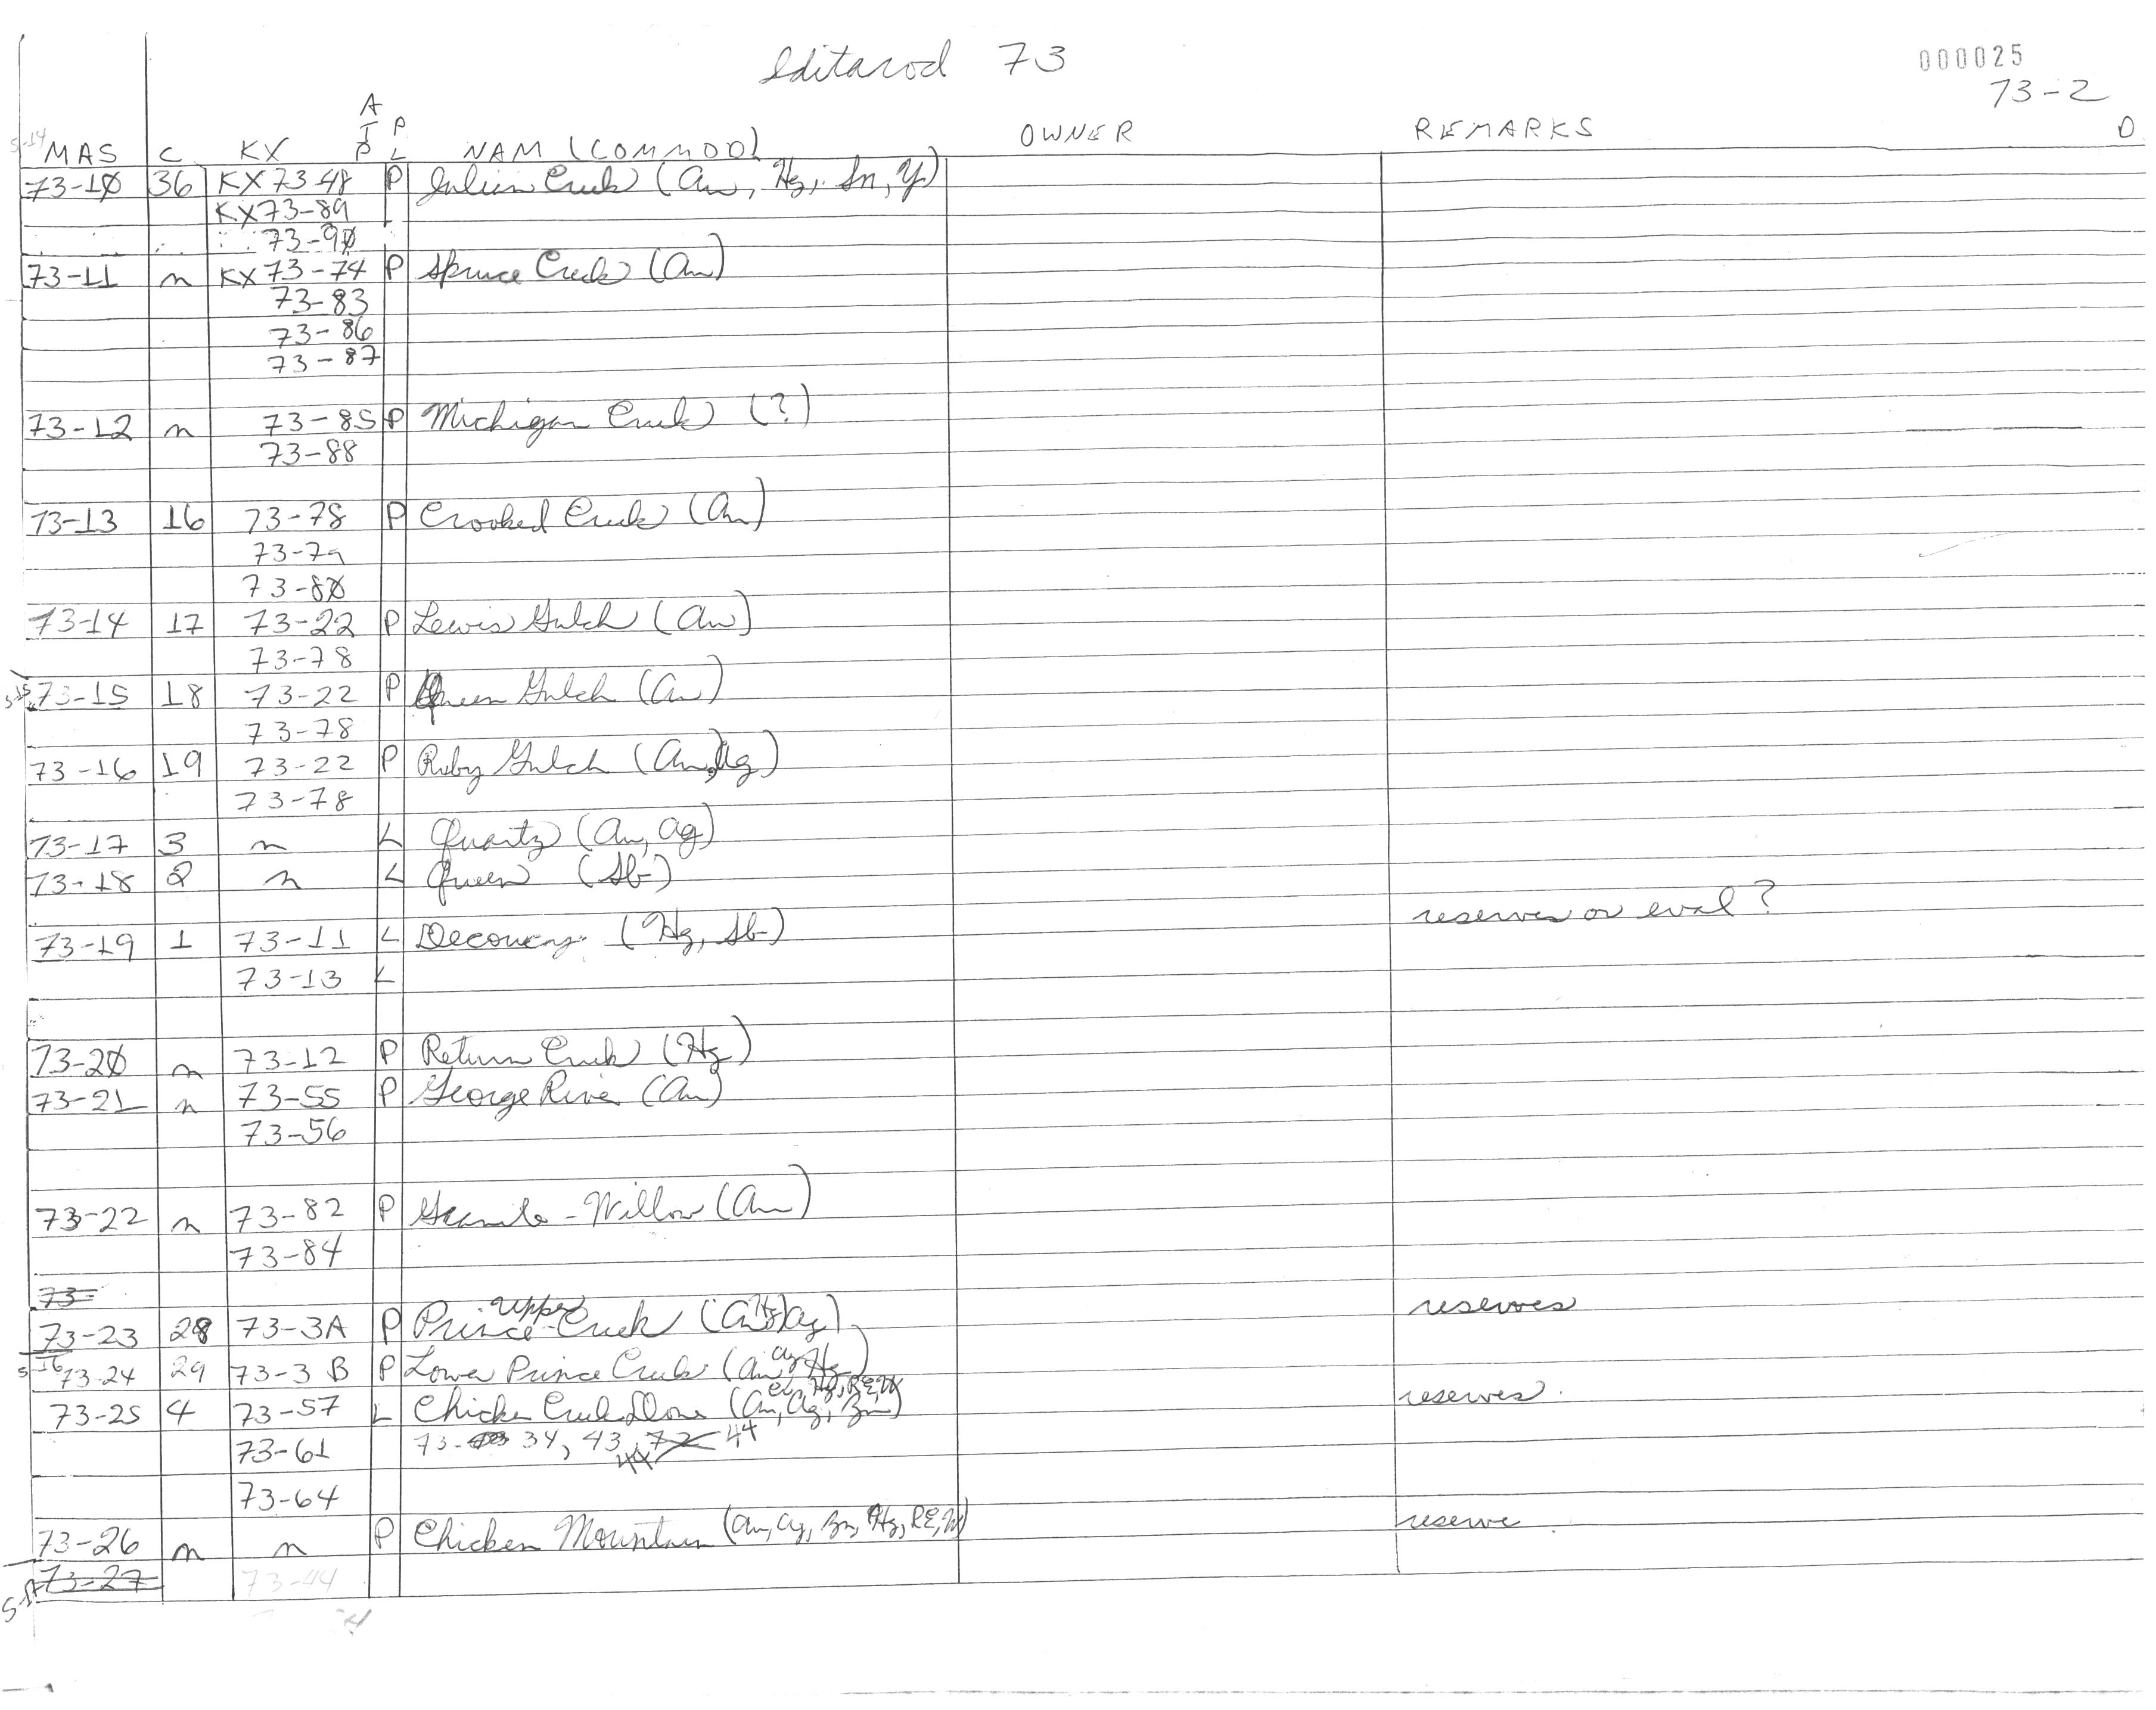 Iditarod 73
000025
73-2
A T D P L
MAS C KX NAM (COMMOD) OWNER REMARKS D
73-10 36 KX 73 48 P Julian Creek (Au, Hg, Sn, Y)
KX 73-89 L
73-90
73-11 n KX 73-74 P Spruce Creek (Au)
73-83
73-86
73-87
73-12 n 73-85 P Michigan Creek (?)
73-88
73-13 16 73-78 P Crooked Creek (Au)
73-79
73-80
73-14 17 73-22 P Lewis Gulch (Au)
73-78
73-15 18 73-22 P Queen Gulch (Au)
73-78
73-16 19 73-22 P Ruby Gulch (Au, Ag)
73-78
73-17 3 n L Quartz (Au, Ag)
73-18 2 n L Queen (Sb)
reserves or eval?
73-19 1 73-11 L Decourcy (Hg, Sb)
73-13 L
73-20 n 73-12 P Return Creek (Hg)
73-21 n 73-55 P George River (Au)
73-56
73-22 n 73-82 P Granite - Willow (Au)
73-84
73-
73-23 28 73-3A P Upper Prince Creek (Au, Hg, Ag) reserves
73-24 29 73-3B P Lower Prince Creek (Au, Ag, Hg)
73-25 4 73-57 L Chicken Creek Dome (Au, Ag, Zn, Hg, RE, W) reserves.
73-61 73- 34, 43, 44
73-64
73-26 n n P Chicken Mountain (Au, Ag, Zn, Hg, RE, W) reserve
73-27 73-44